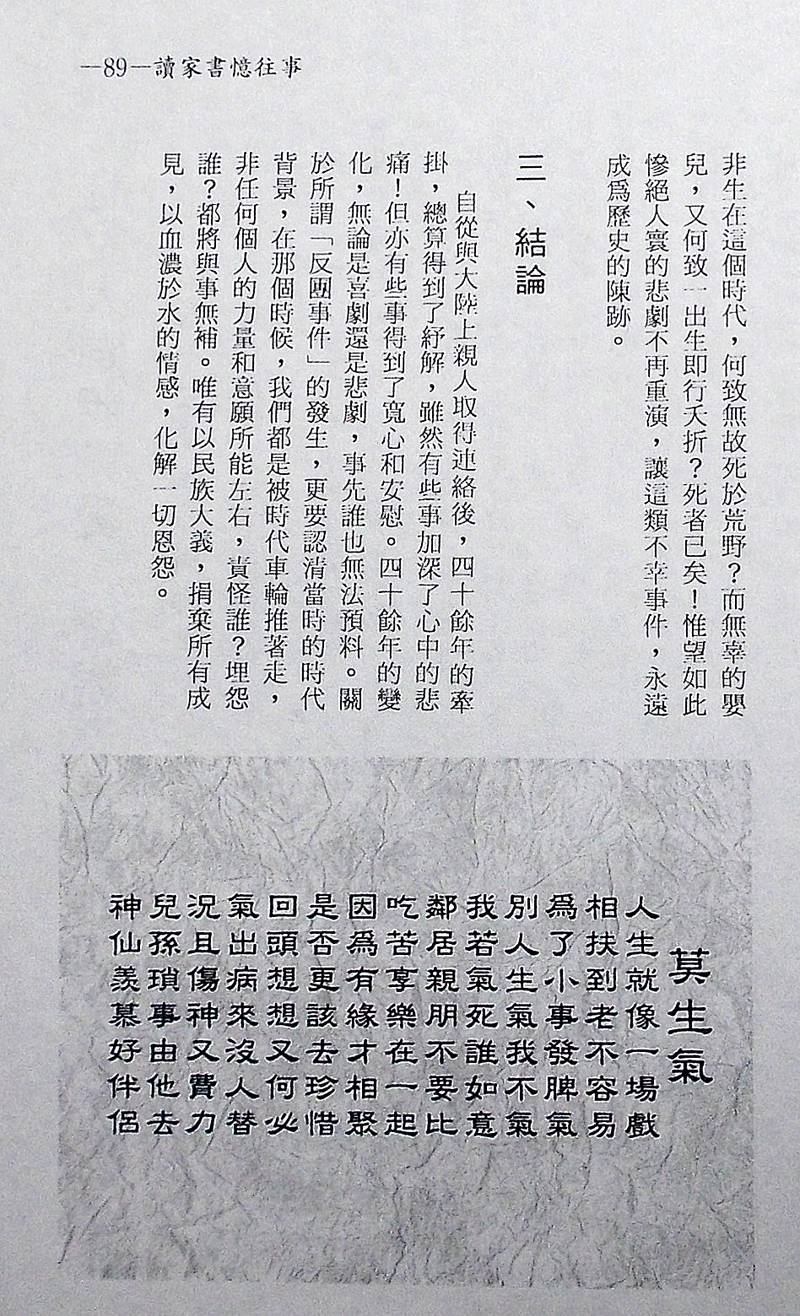 —89—讀家書憶往事
非生在這個時代，何致無故死於荒野？而無辜的嬰
兒，又何致一出生即行夭折？死者已矣！惟望如此
慘絕人寰的悲劇不再重演，讓這類不幸事件，永遠
成爲歷史的陳跡。
三、結論
自從與大陸上親人取得連絡後，四十餘年的牽
掛，總算得到了紓解，雖然有些事加深了心中的悲
痛！但亦有些事得到了寬心和安慰。四十餘年的變
化，無論是喜劇還是悲劇，事先誰也無法預料。關
於所謂「反團事件」的發生，更要認清當時的時代
背景，在那個時候，我們都是被時代車輪推著走，
非任何個人的力量和意願所能左右，責怪誰？埋怨
誰？都將與事無補。唯有以民族大義，捐棄所有成
見，以血濃於水的情感，化解一切恩怨。
莫生氣
人生就像一場戲
相扶到老不容易
爲了小事發脾氣
別人生氣我不氣
我若氣死誰如意
鄰居親朋不要比
吃苦享樂在一起
因爲有緣才相聚
是否更該去珍惜
回頭想想又何必
氣出病來沒人替
況且傷神又費力
兒孫瑣事由他去
神仙羨慕好伴侶